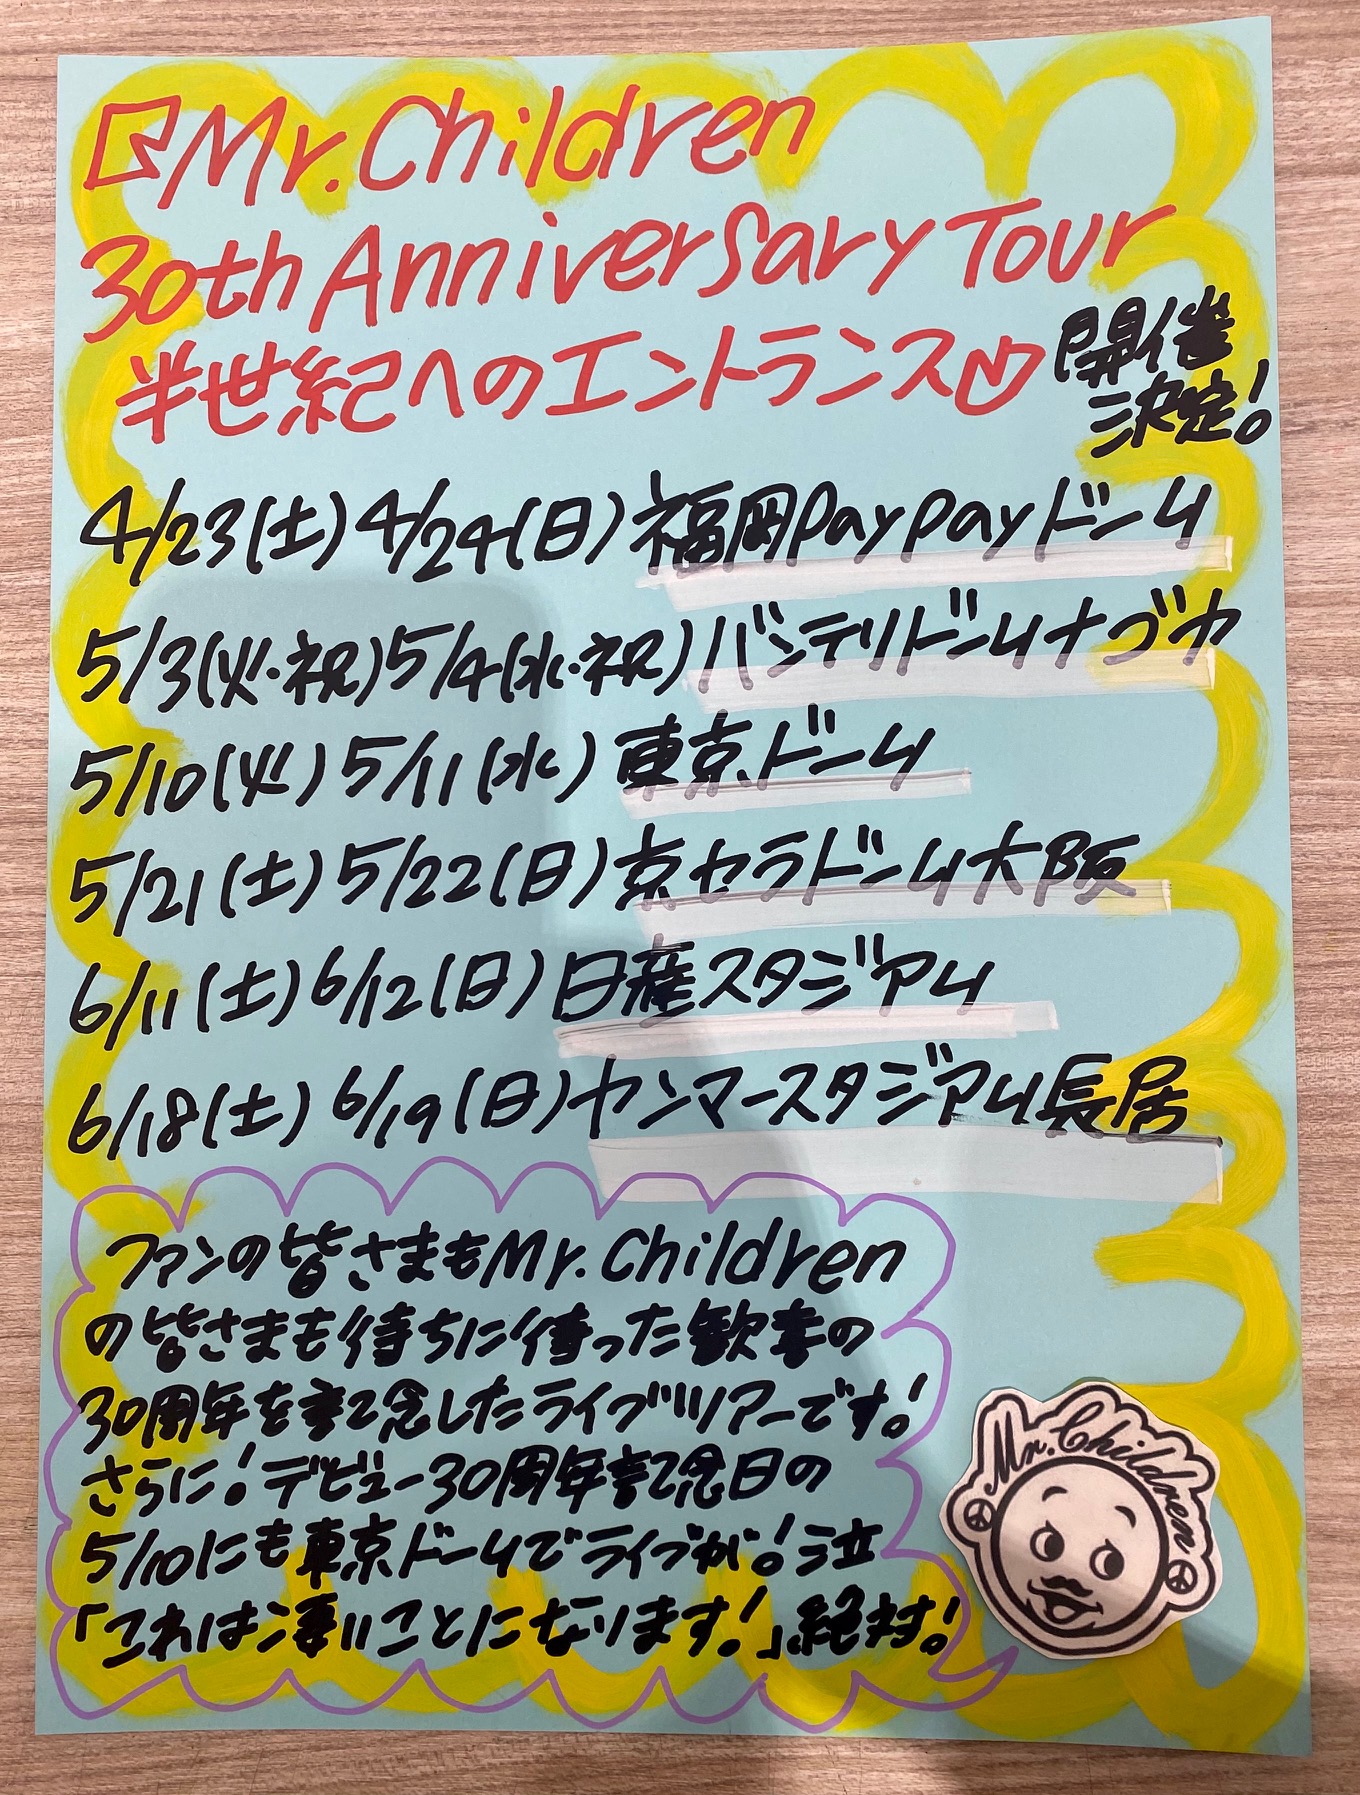 『Mr.Children
30th Anniversary Tour
半世紀へのエントランス』
開催
決定!
4/23(土)4/24(日)福岡PayPayドーム
5/3(火・祝)5/4(水・祝)バンテリンドームナゴヤ
5/10(火)5/11(水)東京ドーム
5/21(土)5/22(日)京セラドーム大阪
6/11(土)6/12(日)日産スタジアム
6/18(土)6/19(日)ヤンマースタジアム長居
ファンの皆さまもMr.Children
の皆さまも待ちに待った歓喜の
30周年を記念したライブツアーです!
さらに!デビュー30周年記念日の
5/10にも東京ドームでライブが!泣
「これは凄いことになります!」絶対!
Mr.Children